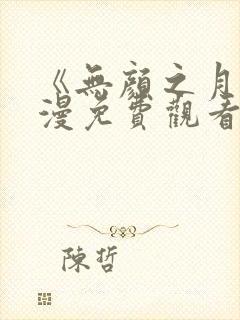 《無顏之月
漫免費觀看
陳哲